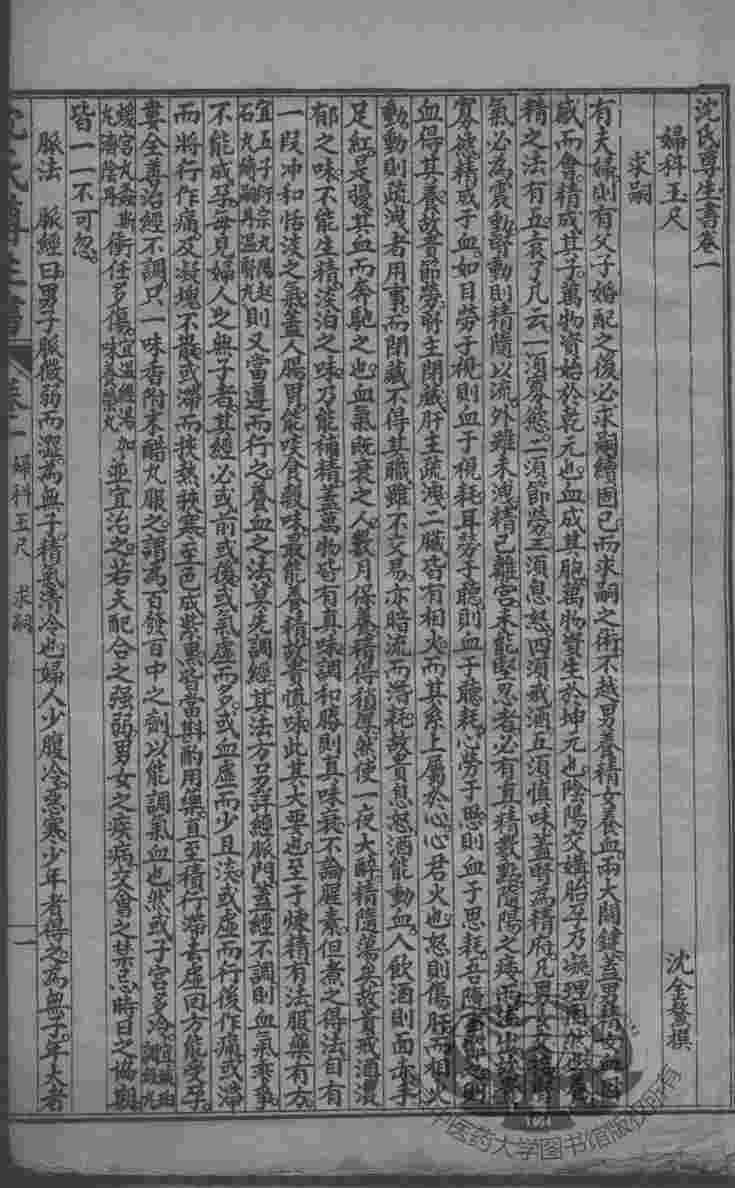 沈氏尊生書卷一
沈金鰲撰
婦科玉尺
求嗣
有夫婦則有父子婚配之後必求嗣續固已而求嗣之術不越男養精女養血兩大關鍵蓋男精女血
感而會精成其子萬物資始於乾元也血成其胞萬物資生於坤元也陰陽交媾胎孕乃凝理固然也養
精之法有五袁了凡云一須寡慾二須節勞三須息怒四須戒酒五須慎味蓋腎為精府凡男女交接腎
氣必為震動腎動則精隨以流外雖未洩精已離宮未能堅忍者必有真精數點隨陽之痿而溢出故貴
寡欲精成于血如目勞于視則血于視耗耳勞于聽則血于聽耗心勞于思則血于思耗吾隨
血得其養故貴節勞腎主閉藏肝主疏洩二臟皆有相火而其系上屬於心心君火也怒則傷肝而相火
動動則疏洩者用事而閉藏不得其職雖不交易亦暗流而潛耗故貴息怒酒能動血人飲酒則面赤手
足紅是擾其血而奔馳之也血氣既衰之人數月保養精得稍厚然使一夜大醉精隨蕩矣故貴戒酒濃
郁之味不能生精淡泊之味乃能補精蓋萬物皆有真味調和勝則真味衰不論腥素但煮之得法自有
一段沖和恬淡之氣蓋人腸胃能啖食穀味最能養精故貴慎味此其大要也至于煉精有法服藥有方
宜五子衍宗丸陽起
石丸續嗣丹溫腎丸
則又當遵而行之養血之法莫先調經其法方另詳經脈門蓋經不調則血氣乖爭
不能成孕每見婦人之無子者其經必或前或後或氣虛而多或血虛而少且淡或虛而行後作痛或滯
而將行作痛及凝塊不散或滯而挾熱挾寒至色成紫黑皆當斟酌用藥直至積行滯去虛回方能受孕
婁全善治經不調只一味香附末醋丸服之謂為百發百中之劑以能調氣血也然或子宮多冷
煖宮丸螽斯
丸濟陰丹
衝任多傷
宜還經湯加
味養榮丸
並宜治之若夫配合之強弱男女之疾病交會之禁忌時日之協期
皆一一不可忽
脈法　脈經曰男子脈微弱而澀為無子精氣清冷也婦人少腹冷惡寒少年者得之為無子年大者
卷一
婦科玉尺　求嗣
一
中医药大学图书馆版权所有